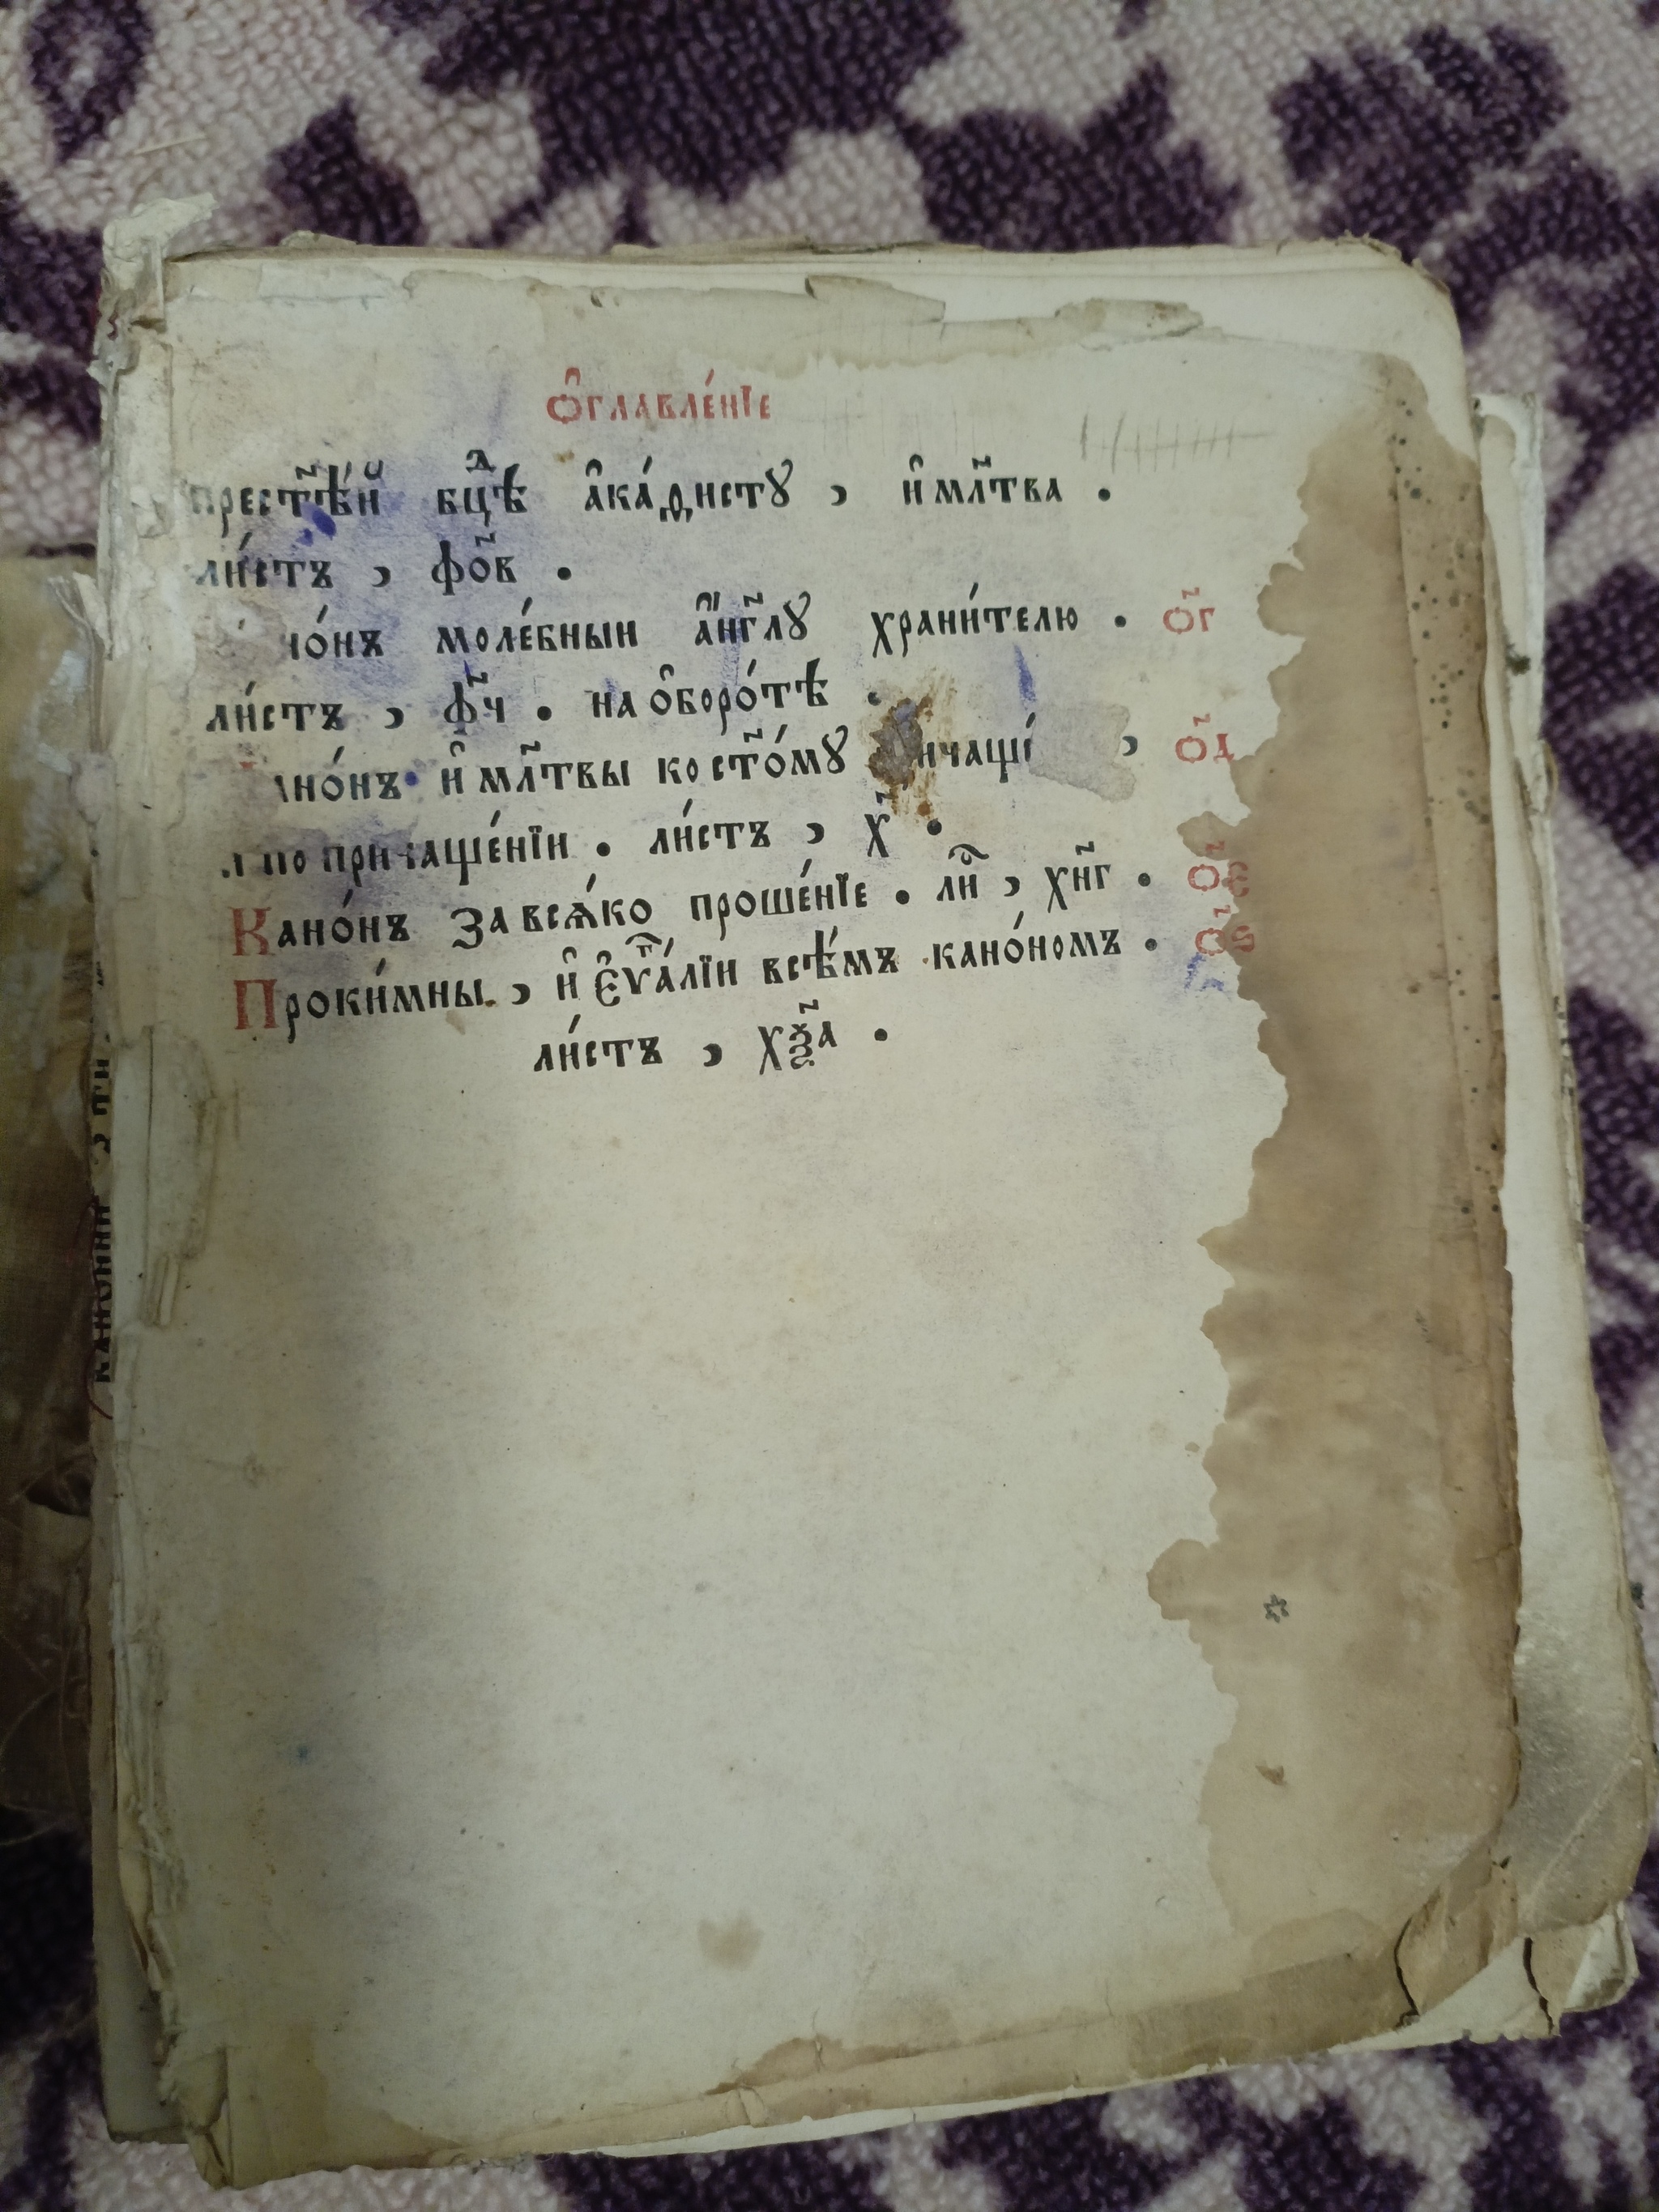 Ѻ҆главле́нїе
прест҃ѣ́й бцⷣѣ а҆ка́ѳистꙋ , и҆ мл҃тва .
ли́стъ , фѻ҃в .
моле́бныи а҆́нг҃лꙋ храни́телю . ѻ҃г
ли́стъ , ф҃ч . на ѻ҆боро́тѣ .
и҆ мл҃твы ко ст҃о́мꙋ , ѻ҃д
по причаще́нїи . ли́стъ , х҃ .
Кано́нъ за всѧ́ко проше́нїе . лиⷭ҇ , хн҃г . ѻ҃є
Проки́мны , и҆ є҆ѵⷢ҇а́лїи всѣ́мъ кано́номъ . ѻ҃ѕ
ли́стъ , хѯ҃а .